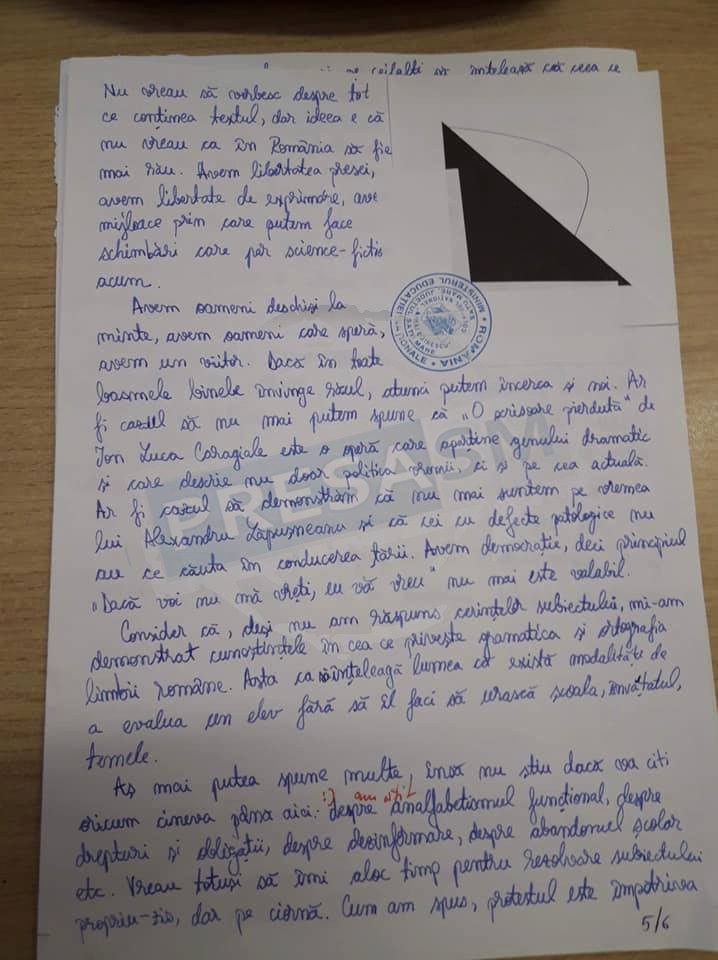 ceilalți să înțeleagă că ceea ce
Nu vreau să vorbesc despre tot
ce conținea textul, dar ideea e că
nu vreau ca în România să fie
mai rău. Avem libertatea presei,
avem libertate de exprimare, ave
mijloace prin care putem face
schimbări care par science-fictio
acum.
Avem oameni deschiși la
minte, avem oameni care speră,
avem un viitor. Dacă în toate
basmele binele învinge răul, atunci putem încerca și noi. Ar
fi cazul să nu mai putem spune că „O scrisoare pierdută" de
Ion Luca Caragiale este o operă care aparține genului dramatic
și care descrie nu doar politica vremii, ci și pe cea actuală.
Ar fi cazul să demonstrăm că nu mai suntem pe vremea
lui Alexandru Lăpușneanu și că cei cu defecte patologice nu
au ce căuta în conducerea țării. Avem democrație, deci principiul
„Dacă voi nu mă vreți, eu vă vreu" nu mai este valabil.
Consider că, deși nu am răspuns cerințelor subiectului, mi-am
demonstrat cunoștințele în cea ce privește gramatica și ortografia
limbii române. Asta ca să înțeleagă lumea că există modalități de
a evalua un elev fără să îl faci să urască școala, învățatul,
temele.
Aș mai putea spune multe, însă nu știu dacă va citi
:) am citit
oricum cineva până aici: despre analfabetismul funcțional, despre
drepturi și obligații, despre dezinformare, despre abandonul școlar
etc. Vreau totuși să îmi aloc timp pentru rezolvare subiectului
propriu-zis, dar pe ciornă. Cum am spus, protestul este împotriva
5/6
ROMÂNIA
MINISTERUL EDUCAȚIEI NAȚIONALE
PRESASM